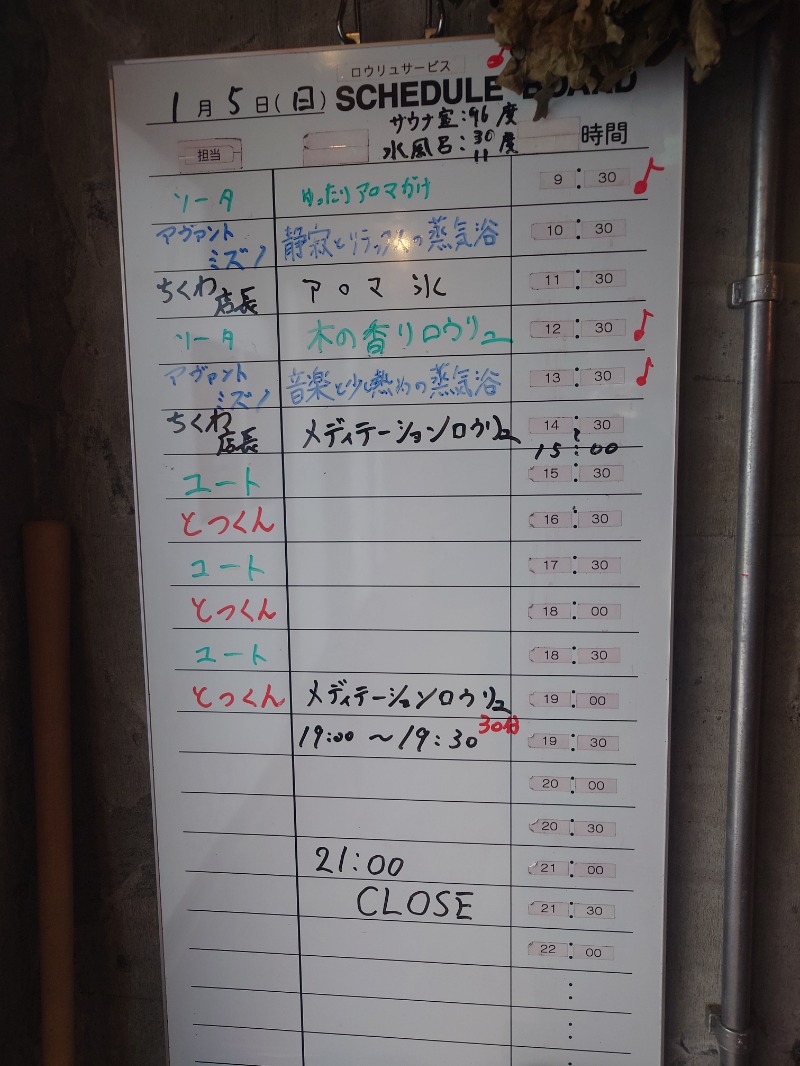 ロウリュサービス
1月5日(日) SCHEDULE BOARD
サウナ室:96度
水風呂:30度
11
担当 時間
ソータ ゆったりアロマがけ 9:30
アヴァント
ミズノ 静寂とリラックスの蒸気浴 10:30
ちくわ
店長 アロマ氷 11:30
ソータ 木の香りロウリュ 12:30
アヴァント
ミズノ 音楽と少し熱めの蒸気浴 13:30
ちくわ
店長 メディテーションロウリュ 14:30
~
15:00
ユート 15:30
とっくん 16:30
ユート 17:30
とっくん 18:00
ユート 18:30
とっくん メディテーションロウリュ 19:00
30分
19:00~19:30 19:30
20:00
20:30
21:00 21:00
CLOSE 21:30
22:00
:
:
: